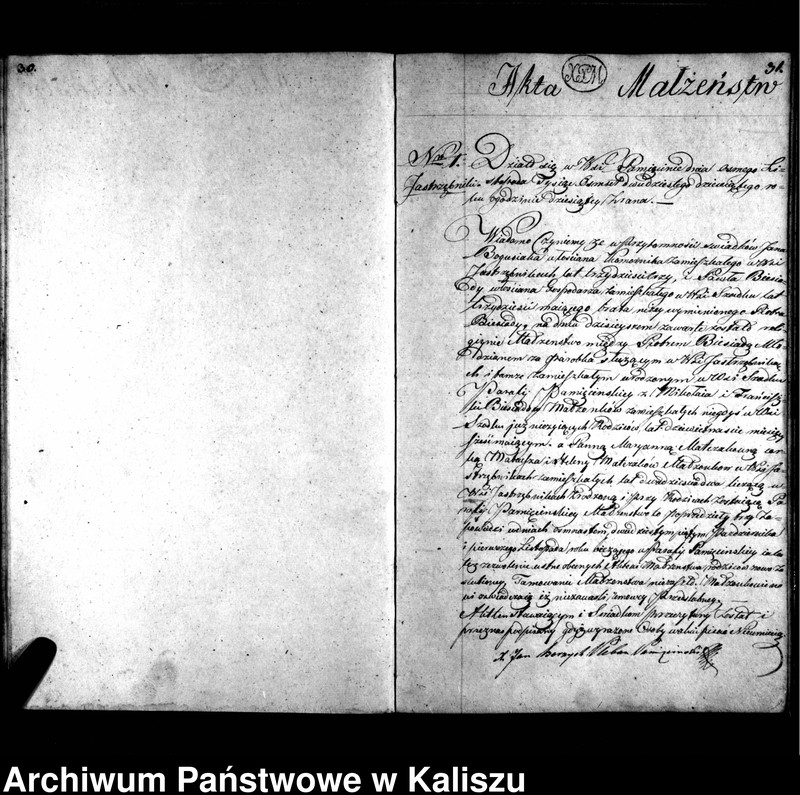 30.
31.
Akta Małżeństw
Nro 1.
Jastrzębniki
Działo się w Wsi Pamięcinie dnia osmego Li-
stopada Tysiąc Osmset dwudziestego dziewiątego ro-
ku o godzinie dziesiątey z rana. —
Wiadomo Czyniemy że w przytomności swiadków Jana
Bogusiaka włosciana Komornika zamieszkałego w Wsi
Jastrzębnikach lat trzydzieści trzy, i Pawła Biesia-
dy włosciana Gospodarza zamieszkałego w Wsi Szadku lat
trzydzieści maiącego brata niżey wymienionego Piotra
Biesiady, na dniu dzisieyszem zawarte zostało reli-
giynie Małżenstwo między Piotrem Biesiadą Mło-
dzianem za parobka służącym w Wsi Jastrzębnika-
ch i tamże zamieszkałym urodzonym w Wsi Szadku
Parafij Pamięcinskiey z Mikołaia i Francisz-
ki Biesiadów Małżonków zamieszkałych niegdyś w Wsi
Szadku już nieżyiących Rodziców lat dziewiętnascie miesięcy
sześć maiącym. a Panną Maryanną
cor-
ką Mateusza i Heleny
Małżonków w Wsi Ja-
strzębnikach zamieszkałych lat dwadzieścia dwa liczącą w
Wsi Jastrzębnikach zrodzoną i przy Rodzicach zostaiącą Pa-
rafij Pamięcinskiey Małżenstwo to poprzedziły trzy Za-
powiedzi w dniach osmnastem, dwudziestym piątym Pazdziernika
i pierwszego Listopada roku bieżącego w Parafij Pamięcinskiey iako
też zezwolenie ustne obecnych Aktowi Małżenstwa rodziców nowo za-
slubioney. Tamowanie Małżenstwa niezaszło. Małżonkowie no-
wi oswiadczaią iż niezawarli umowy przedslubney.
Akt ten Stawaiącym i Swiadkom przeczytany został i
przez nas podpisany gdyż wyrażone Osoby waktu pisać Nieumieią.
X. Jan
Pleban Pamięcinski
Archiwum Państwowe w Kaliszu